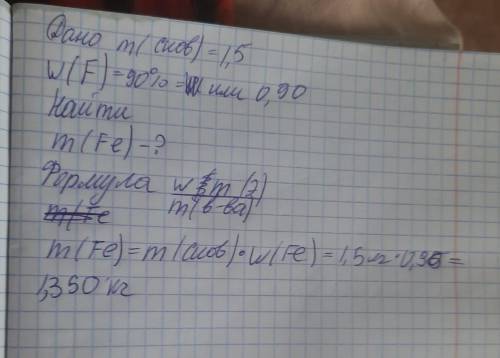 Дано m(слов)=1,5
W(F)=90%= или 0,90
Найти
m(Fe)-?
Формула w m(2)
m(в-ва)
m(Fe)=m(слов)•w(Fe)=1,5кг•0,90=
1,350 кг